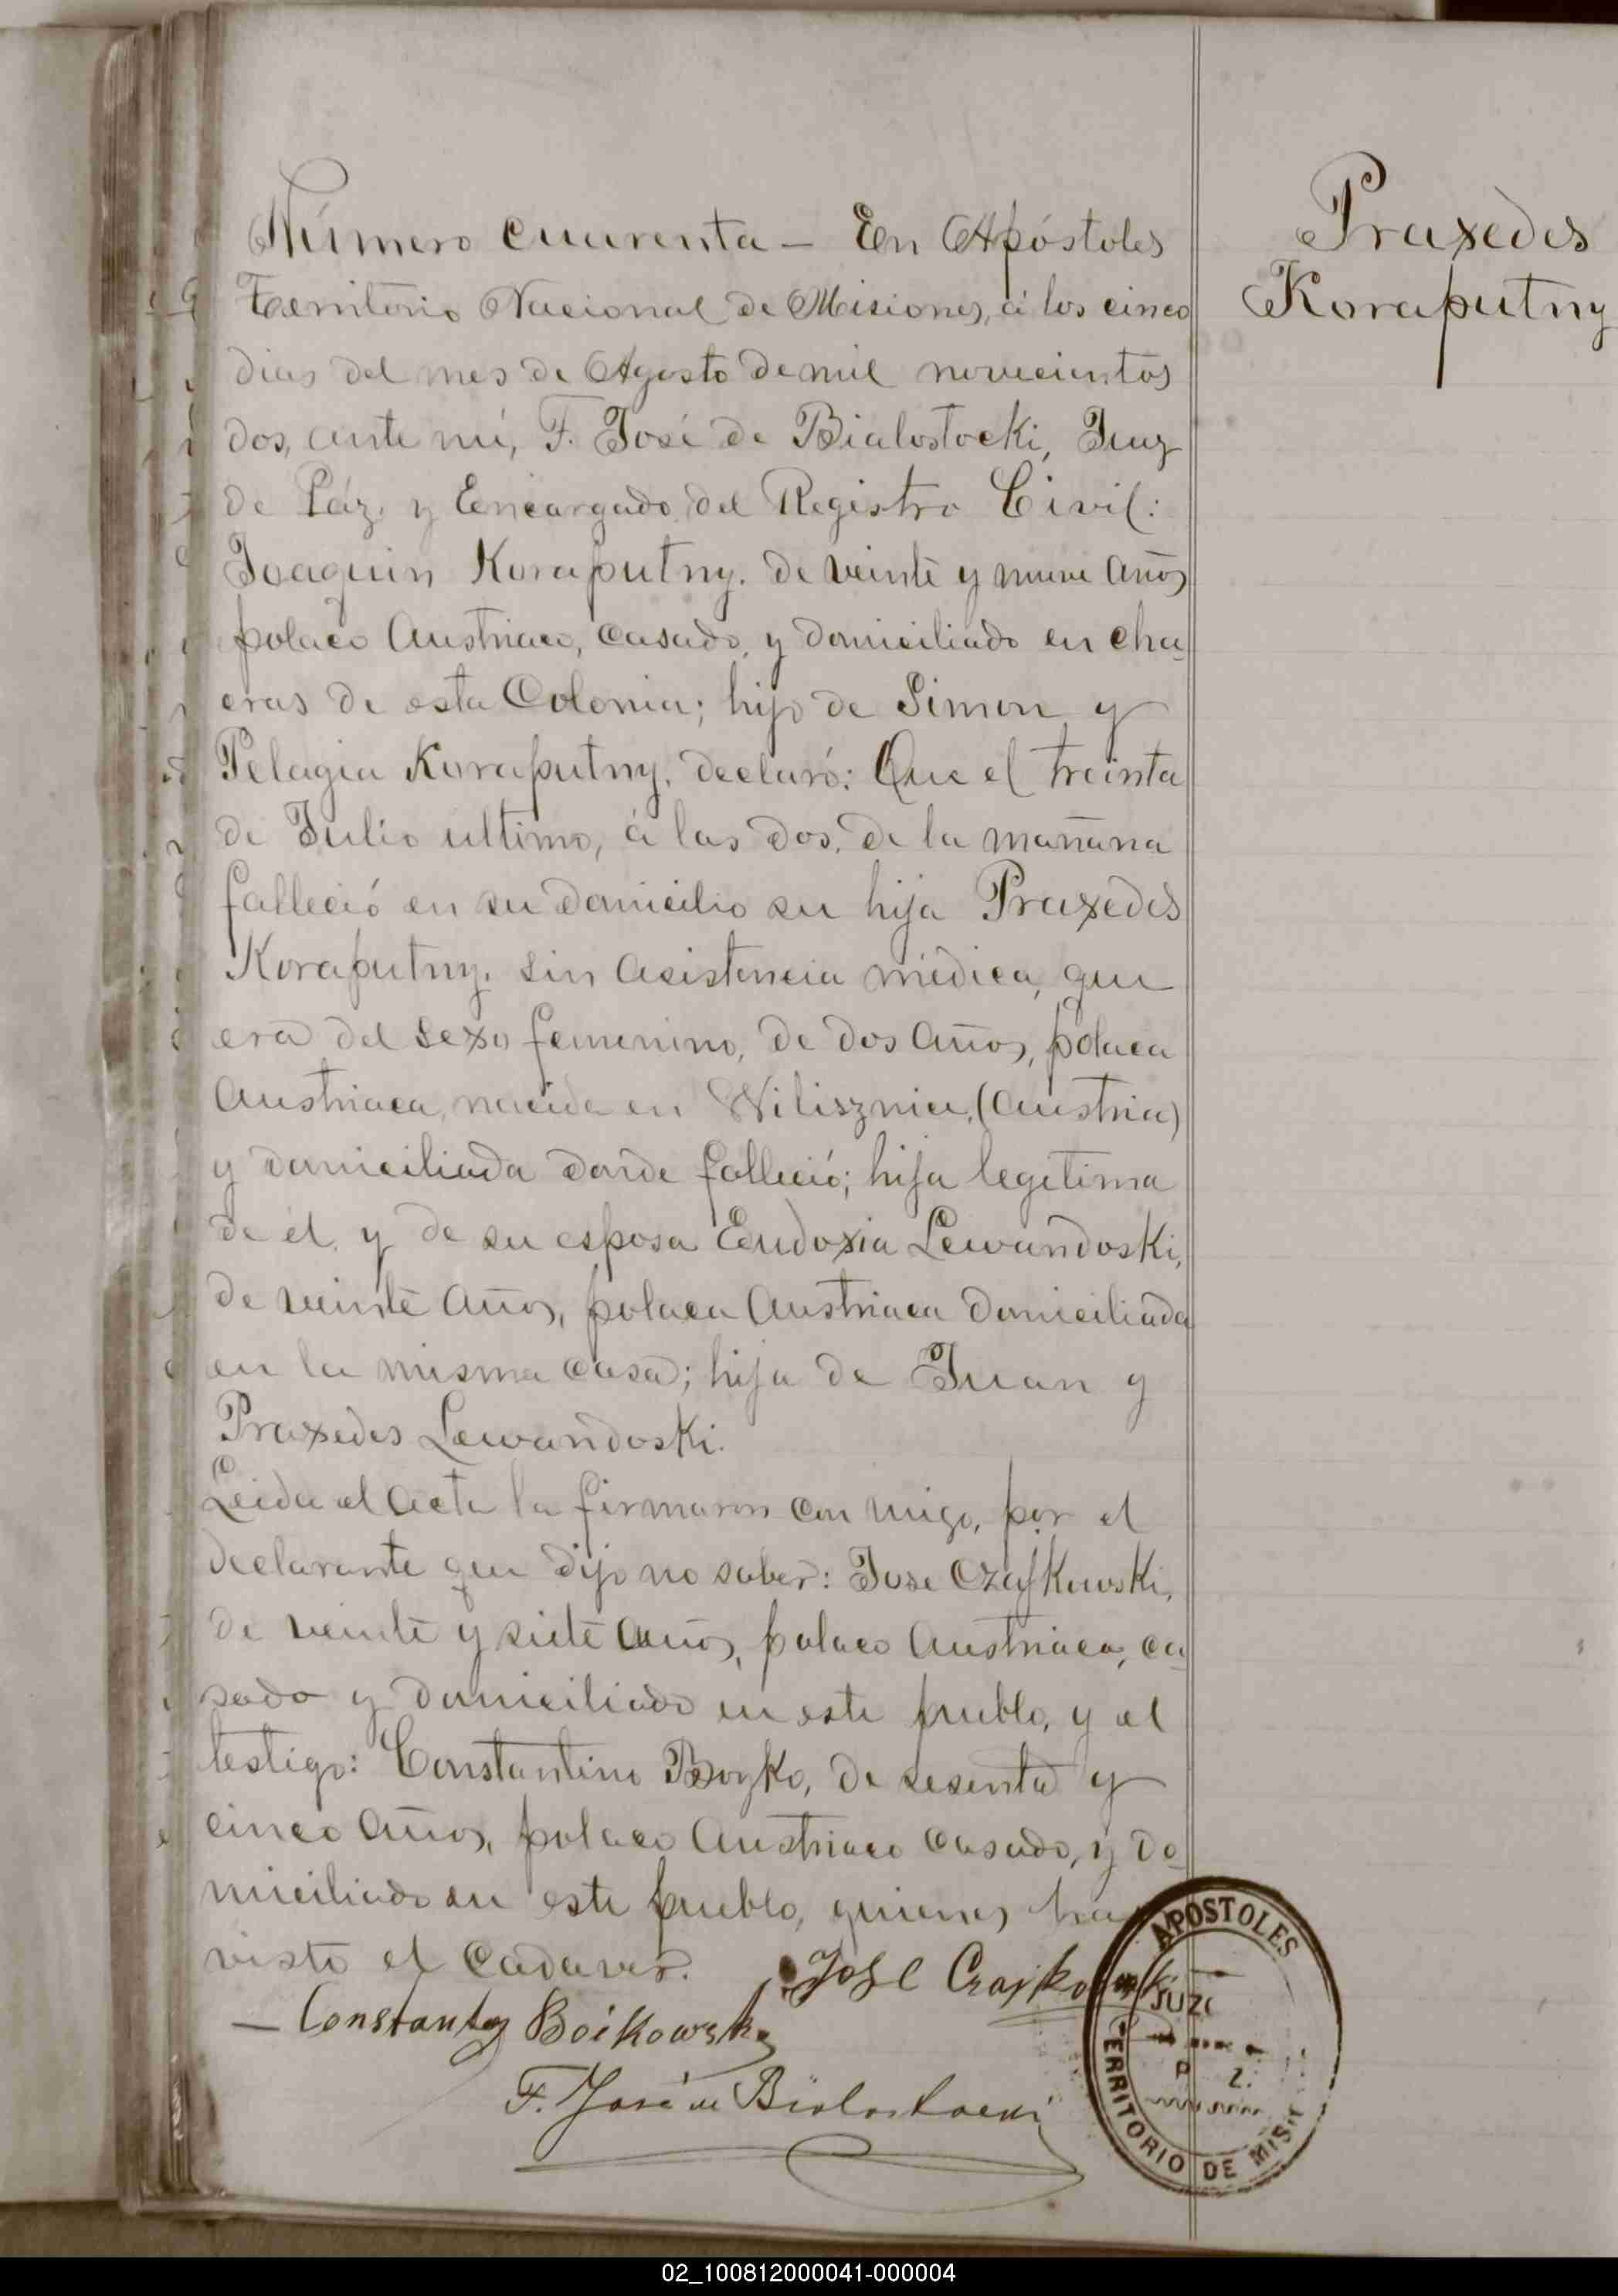 Número cuarenta — En Apóstoles
Territorio Nacional de Misiones, á los cinco
dias del mes de Agosto de mil novecientos
dos, ante mi, F. José de Bialostocki, Juez
de Páz, y Encargado del Registro Civil:
Joaquin Koraputny, de veinte y nueve años
polaco Austriaco, casado, y domiciliado en cha_
cras de esta Colonia; hijo de Simon y
Pelagia Koraputny, declaró: Que el treinta
de Julio ultimo, á las dos, de la mañana
falleció en su domicilio su hija Praxedes
Koraputny, sin asistencia médica, que
era del sexo femenino, de dos años, polaca
Austriaca, nacida en Wilisznia, (Austria)
y domiciliada donde falleció; hija legitima
de él, y de su esposa Eudoxia Lewandoski,
de veinte años, polaca Austriaca domiciliada
en la misma casa; hija de Juan y
Praxedes Lewandoski.
Leida el acta la firmaron con migo, por el
declarante que dijo no saber: Jose Czajkowski,
de veinte y siete años, polaco Austriaco, ca_
sado y domiciliado en este pueblo, y el
testigo: Constantino Boyko, de sesenta y
cinco años, polaco Austriaco casado, y do_
miciliado en este pueblo, quienes han
visto el cadaver.
Jose Czajkowski
— Constanty Boikowski
F. José de Bialostocki
Praxedes
Koraputny
APOSTOLES
JUZ
TERRITORIO DE MISI
02_100812000041-000004